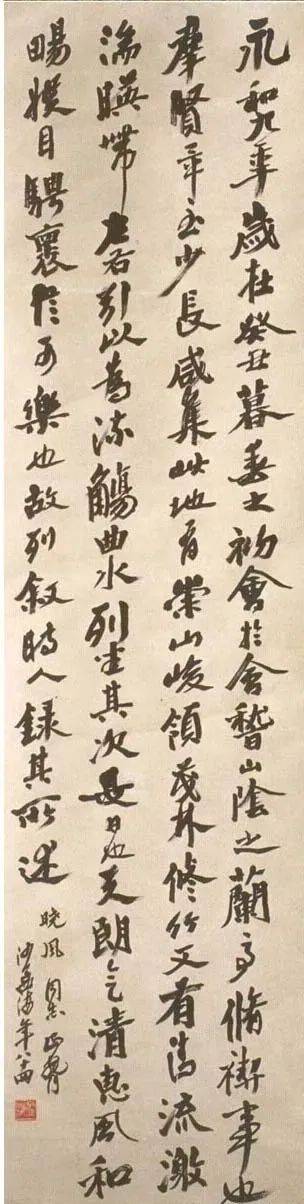 永和九年歲在癸丑暮春之初會於會稽山陰之蘭亭脩禊事也
羣賢畢至少長咸集此地有崇山峻領茂林修竹又有清流激
湍暎帶左右引以為流觴曲水列坐其次是日也天朗氣清惠風和
暢娛目騁懷信可樂也故列敘時人錄其所述
曉風同志正
沙孟海年八